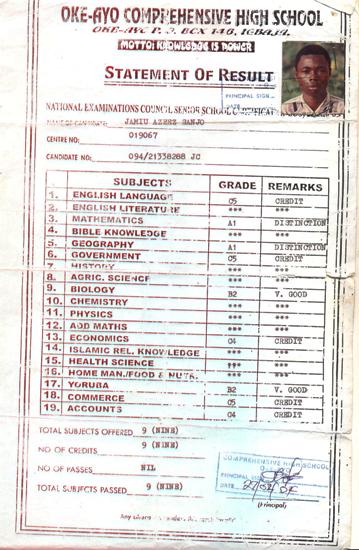 OKE-AYO COMPREHENSIVE HIGH SCHOOL
OKE-AYO P. O. BOX 146, IGBAJA.
MOTTO: KNOWLEDGE IS POWER
STATEMENT OF RESULT
PRINCIPAL SIGN
DATE
NATIONAL EXAMINATIONS COUNCIL SENIOR SCHOOL
NAME OF CANDIDATE: JAMIU AZEEZ BANJO
CENTRE NO: 019067
CANDIDATE NO: 094/21338288 JC
SUBJECTS GRADE REMARKS
1. ENGLISH LANGUAGE C5 CREDIT
2. ENGLISH LITERATURE *** ***
3. MATHEMATICS A1 DISTINCTION
4. BIBLE KNOWLEDGE *** ***
5. GEOGRAPHY A1 DISTINCTION
6. GOVERNMENT C5 CREDIT
7. HISTORY *** ***
8. AGRIC. SCIENCE *** ***
9. BIOLOGY B2 V. GOOD
10. CHEMISTRY *** ***
11. PHYSICS *** ***
12. ADD MATHS *** ***
13. ECONOMICS C4 CREDIT
14. ISLAMIC REL. KNOWLEDGE *** ***
15. HEALTH SCIENCE *** ***
16. HOME MAN./FOOD & NUTR. *** ***
17. YORUBA B2 V. GOOD
18. COMMERCE C5 CREDIT
19. ACCOUNTS C4 CREDIT
TOTAL SUBJECTS OFFERED 9 (NINE)
NO OF CREDITS 9 (NINE)
NO OF PASSES NIL
TOTAL SUBJECTS PASSED 9 (NINE)
COMPREHENSIVE HIGH SCHOOL
PRINCIPAL
DATE
(Principal)